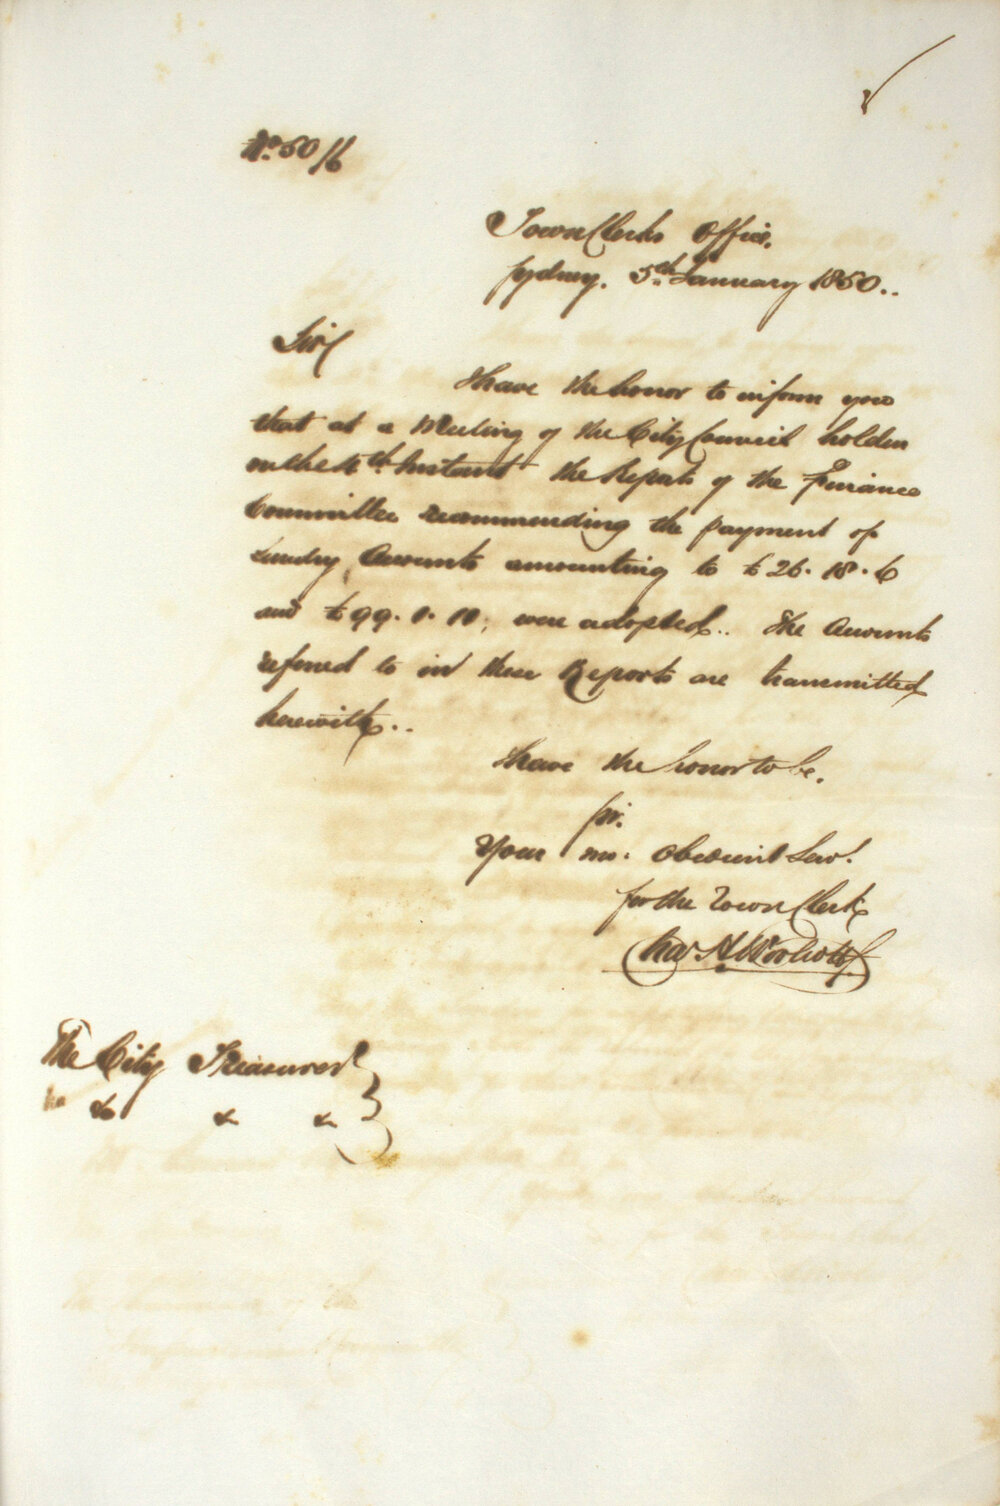 No. 50/6
Town Clerks Office.
Sydney. 5th January 1850..
Sir
I have the honor to inform you
that at a Meeting of the City Council holden
on the 4th Instant the Reports of the Finance
Committee recommending the payment of
Sundry Accounts amounting to £26.18.6
and £99.0.10, were adopted.. The Accounts
referred to in these Reports are transmitted
herewith..
I have the honor to be.
Sir.
Your mo. Obedient Serv.t
for the Town Clerk
Chas. H. Woolcott
The City Treasurer
& & &